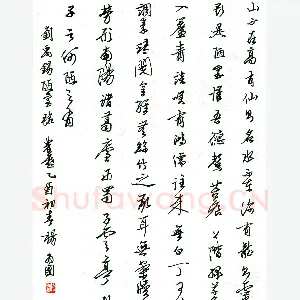 山不在高有仙則名水不在深有龍則靈
斯是陋室惟吾德馨苔痕上階綠草
入簾青談笑有鴻儒往來無白丁可
調素琴閱金經無絲竹之亂耳無案牘
勞形南陽諸葛廬西蜀子雲亭孔
子云何陋之有
劉禹錫陋室銘 乙酉初春楊國
Shufawang.CN